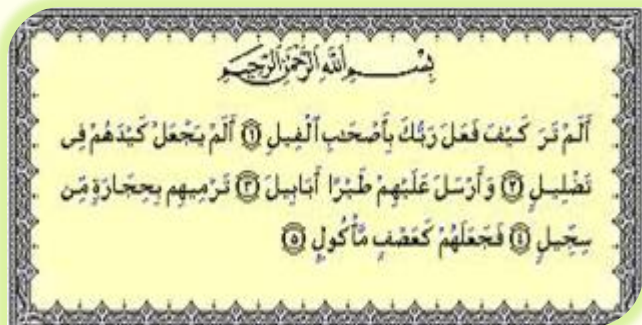 بِسْمِ اللَّهِ الرَّحْمَٰنِ الرَّحِيمِ
أَلَمْ تَرَ كَيْفَ فَعَلَ رَبُّكَ بِأَصْحَٰبِ ٱلْفِيلِ ۝١ أَلَمْ يَجْعَلْ كَيْدَهُمْ فِى
تَضْلِيلٍ ۝٢ وَأَرْسَلَ عَلَيْهِمْ طَيْرًا أَبَابِيلَ ۝٣ تَرْمِيهِم بِحِجَارَةٍ مِّن
سِجِّيلٍ ۝٤ فَجَعَلَهُمْ كَعَصْفٍ مَّأْكُولٍ ۝٥